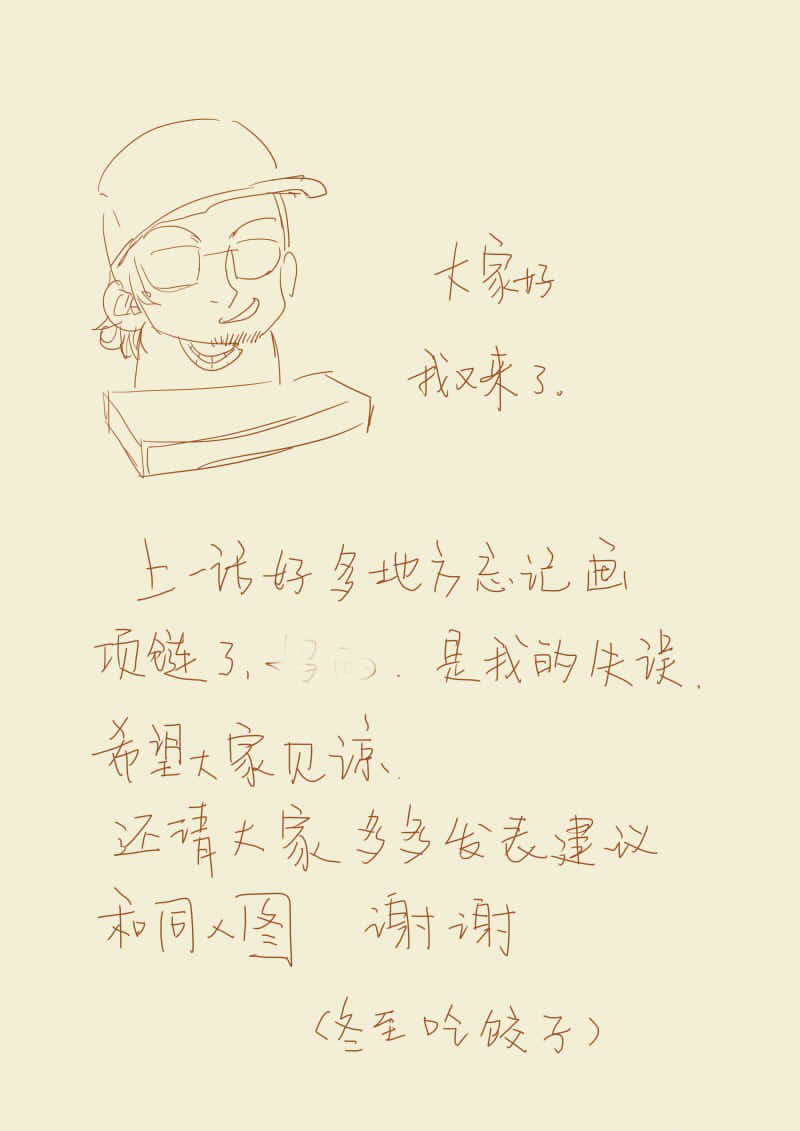 大家好
我又来了。
上一话好多地方忘记画
项链了, . 是我的失误.
希望大家见谅.
还请大家多多发表建议
和同人图 谢谢
(冬至吃饺子)